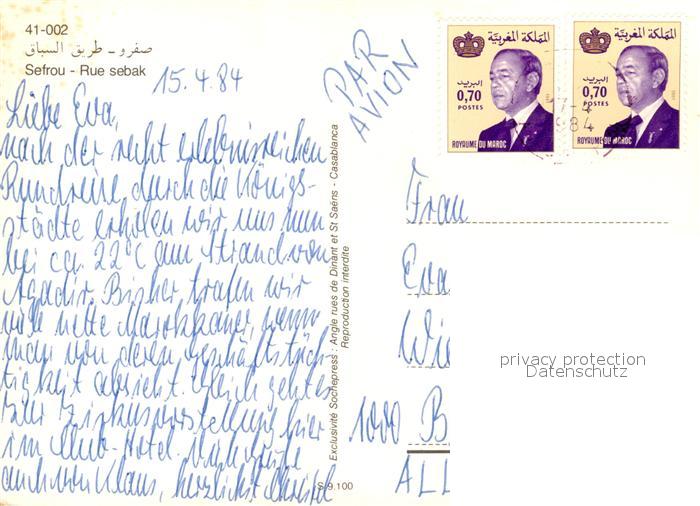 41-002
صفرو ـ طريق السباق
Sefrou - Rue sebak
15.4.84
PAR
AVION
المملكة المغربية
البريد
0,70
POSTES
ROYAUME DU MAROC
المملكة المغربية
البريد
0,70
POSTES
ROYAUME DU MAROC
Liebe Eva,
nach der recht erlebnisreichen
Rundreise durch die Königs-
städte erholen wir uns nun
bei ca. 22°C am Strand von
Agadir. Bisher trafen wir
viele nette Marokkaner, wenn
man von deren Geschäftstüch-
tigkeit absieht. Gleich geht es
zur Zirkusvorstellung hier
im Club-Hotel. Viele Grüße
auch von Klaus, herzlichst Christel
Exclusivité Sochepress : Angle rues de Dinant et St Saëns - Casablanca
Reproduction interdite
S 9.100
Frau
Eva
Wie
1000 B
ALL
privacy protection
Datenschutz